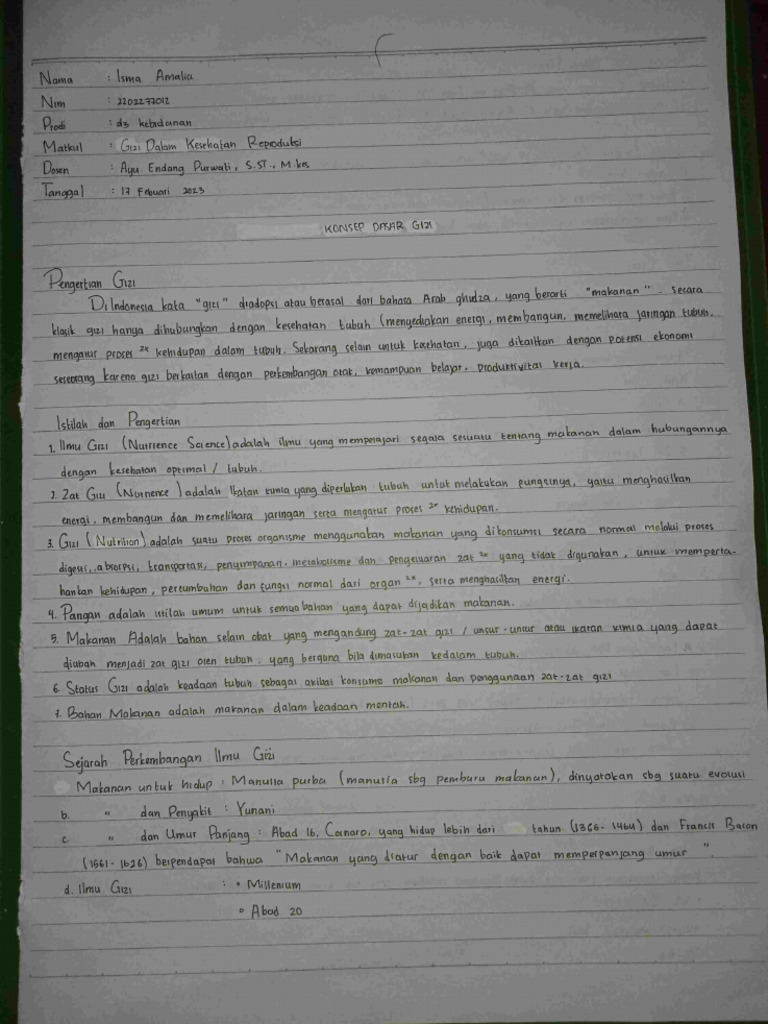 Nama : Isma Amalia
Nim : 2202277012
Prodi : d3 kebidanan
Matkul : Gizi Dalam Kesehatan Reproduksi
Dosen : Ayu Endang Purwati, S.ST., M.kes
Tanggal : 17 Febuari 2023
KONSEP DASAR GIZI
Pengertian Gizi
Di Indonesia kata "gizi" diadopsi atau berasal dari bahasa Arab ghudza, yang berarti "makanan". secara
klasik gizi hanya dihubungkan dengan kesehatan tubuh (menyediakan energi, membangun, memelihara jaringan tubuh,
mengatur proses 2x kehidupan dalam tubuh. Sekarang selain untuk kesehatan, juga dikaitkan dengan potensi ekonomi
seseorang karena gizi berkaitan dengan perkembangan otak, kemampuan belajar, produktivitas kerja.
Istilah dan Pengertian
1. Ilmu Gizi (Nutrience Science) adalah ilmu yang mempelajari segala sesuatu tentang makanan dalam hubungannya
dengan kesehatan optimal / tubuh.
2. Zat Gizi (Nutrience) adalah Ikatan kimia yang diperlukan tubuh untuk melakukan fungsinya, yaitu menghasilkan
energi, membangun dan memelihara jaringan serta mengatur proses 2x kehidupan.
3. Gizi (Nutrition) adalah suatu proses organisme menggunakan makanan yang dikonsumsi secara normal melalui proses
digesti, absorpsi, transportasi, penyimpanan, metabolisme dan pengeluaran zat 2x yang tidak digunakan, untuk memperta-
hankan kehidupan, pertumbuhan dan fungsi normal dari organ 2x, serta menghasilkan energi.
4. Pangan adalah istilah umum untuk semua bahan yang dapat dijadikan makanan.
5. Makanan Adalah bahan selain obat yang mengandung zat-zat gizi / unsur-unsur atau ikatan kimia yang dapat
diubah menjadi zat gizi oleh tubuh, yang berguna bila dimasukan kedalam tubuh.
6. Status Gizi adalah keadaan tubuh sebagai akibat konsumsi makanan dan penggunaan zat-zat gizi
7. Bahan Makanan adalah makanan dalam keadaan mentah.
Sejarah Perkembangan Ilmu Gizi
Makanan untuk hidup : Manusia purba (manusia sbg pemburu makanan), dinyatakan sbg suatu evolusi
b. " dan Penyakit : Yunani
c " dan Umur Panjang : Abad 16, Cornaro, yang hidup lebih dari tahun (1366-1464) dan Francis Bacon
(1561-1626) berpendapat bahwa "Makanan yang diatur dengan baik dapat memperpanjang umur".
d. Ilmu Gizi : • Millenium
• Abad 20